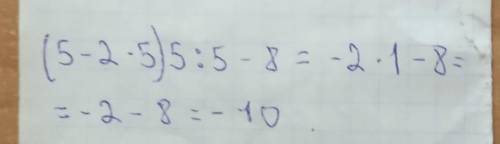 (5-2·5)5:5-8 = -2·1-8=
=-2-8=-10